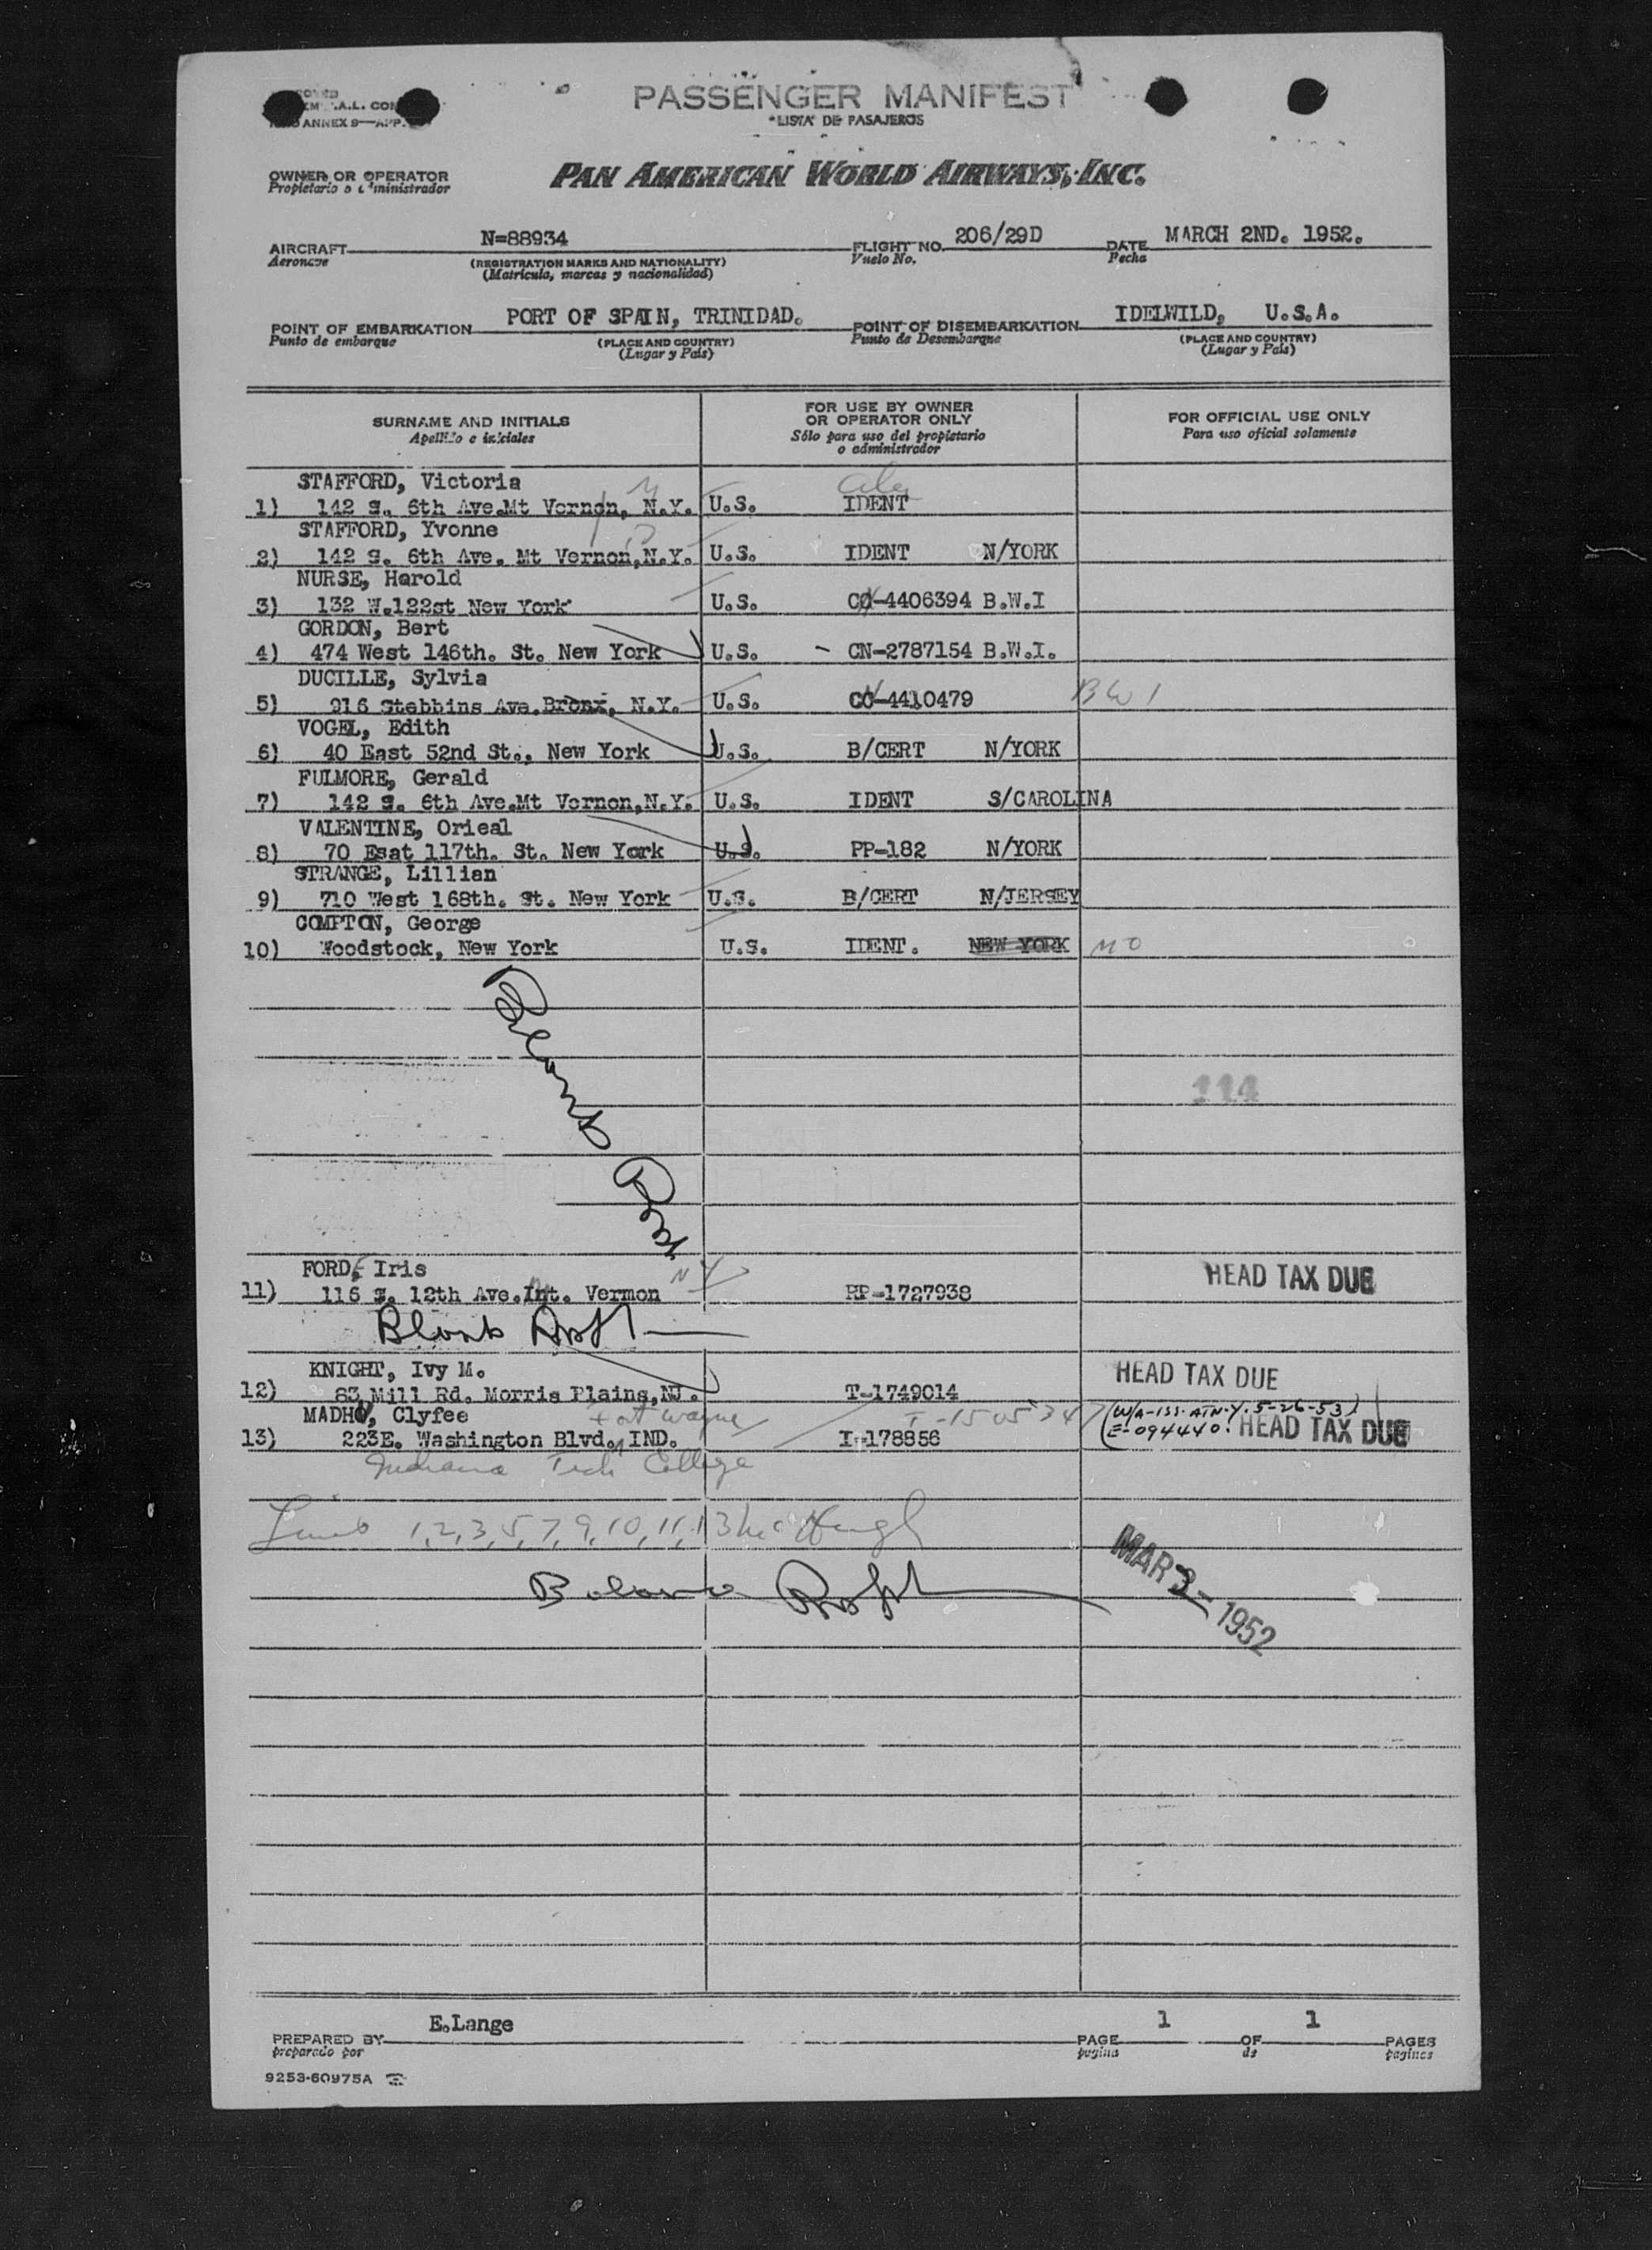 PASSENGER MANIFEST
LISTA DE PASAJEROS
ANNEX 9—APP.
OWNER OR OPERATOR
Propietario o
PAN AMERICAN WORLD AIRWAYS, INC.
AIRCRAFT N=88934 FLIGHT NO. 206/29D DATE MARCH 2ND. 1952.
Aeronave (REGISTRATION MARKS AND NATIONALITY) Vuelo No. Fecha
(Matricula, marcas y nacionalidad)
POINT OF EMBARKATION PORT OF SPAIN, TRINIDAD. POINT OF DISEMBARKATION IDELWILD, U.S.A.
Punto de embarque (PLACE AND COUNTRY) Punto de Desembarque (PLACE AND COUNTRY)
(Lugar y País) (Lugar y País)
SURNAME AND INITIALS FOR USE BY OWNER OR OPERATOR ONLY FOR OFFICIAL USE ONLY
Apellido e iniciales Sólo para uso del propietario o administrador Para uso oficial solamente
STAFFORD, Victoria
1) 142 S. 6th Ave.Mt Vernon, N.Y. U.S. IDENT
STAFFORD, Yvonne
2) 142 S. 6th Ave. Mt Vernon,N.Y. U.S. IDENT N/YORK
NURSE, Harold
3) 132 W.122st New York U.S. CO-4406394 B.W.I
GORDON, Bert
4) 474 West 146th. St. New York U.S. - CN-2787154 B.W.I.
DUCILLE, Sylvia
5) 916 Stebbins Ave.Bronx, N.Y. U.S. CO-4410479 BWI
VOGEL, Edith
6) 40 East 52nd St., New York U.S. B/CERT N/YORK
FULMORE, Gerald
7) 142 S. 6th Ave.Mt Vernon,N.Y. U.S. IDENT S/CAROLINA
VALENTINE, Orieal
8) 70 Esat 117th. St. New York U.S. PP-182 N/YORK
STRANGE, Lillian
9) 710 West 168th. St. New York U.S. B/CERT N/JERSEY
COMPTON, George
10) Woodstock, New York U.S. IDENT. NEW YORK MO
114
FORD, Iris NY
11) 116 S. 12th Ave. Vermon RP-1727938 HEAD TAX DUE
KNIGHT, Ivy M.
12) 83 Mill Rd. Morris Plains,NJ. T-1749014 HEAD TAX DUE
MADHO, Clyfee Fort Wayne T-1505347 (W/A-ISS. AT N.Y. 5-26-53)
13) 223E. Washington Blvd. IND. I-178856 E-094440. HEAD TAX DUE
Indiana Tech College
1,2,3,5,7,9,10,11,13 McHugh
MAR 3-1952
PREPARED BY E.Lange PAGE 1 OF 1 PAGES
preparado por pagina de paginas
9253-60975A